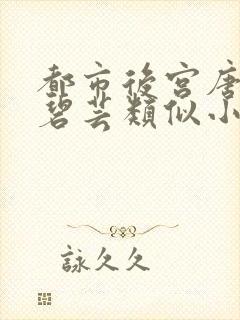 都市後宮唐
碧芸類似小
詠久久